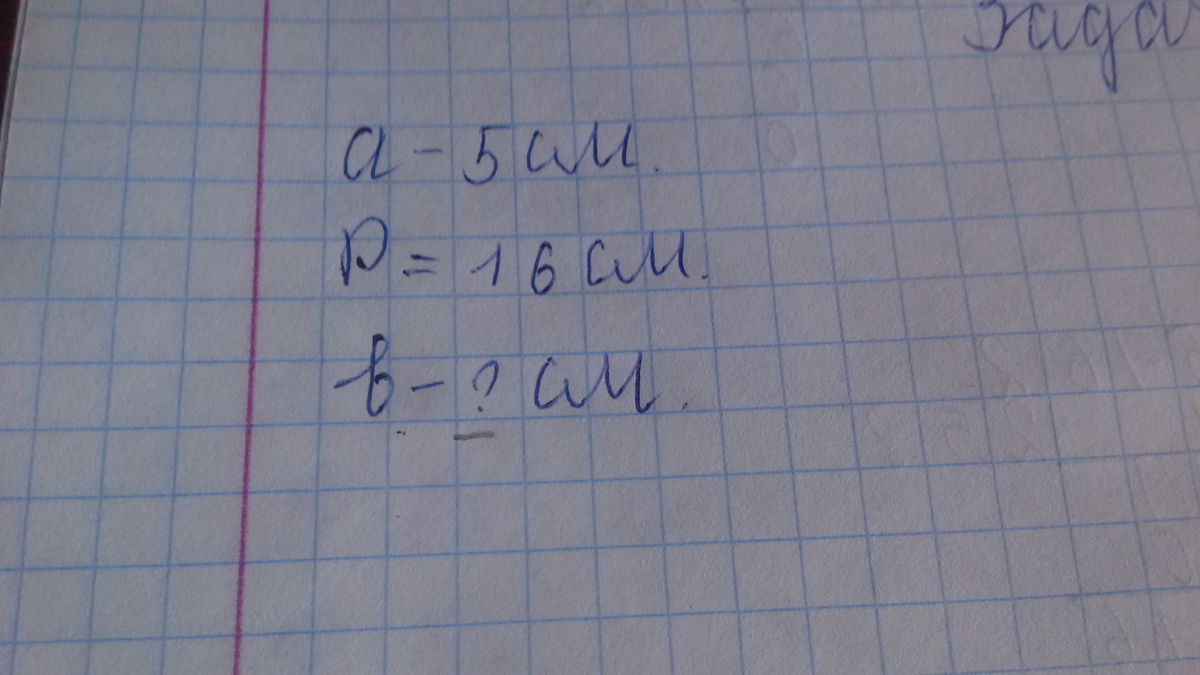 Зада
а - 5 см.
P = 16 см.
в - ? см.